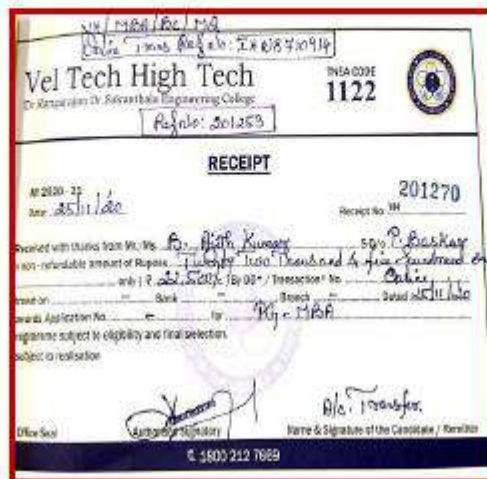 VH/MBA/BC/MQ
Online Trans Ref No: IHN8710914
Vel Tech High Tech
Dr.Rangarajan Dr. Sakunthala Engineering College
TNEA CODE
1122
Ref No: 201253
RECEIPT
AY 2020 - 21
Date 25/11/20
Receipt No. VH 201270
Received with thanks from Mr./Ms. B. Ajith Kumar S/D/o P. Baskar
a non - refundable amount of Rupees Twenty two Thousand & five hundred on
only ( ₹ 22,500/- ) By DD* / Transaction* No. Online
drawn on - Bank - Branch - Dated 25/11/20
towards Application No. - for PG - MBA
programme subject to eligibility and final selection.
subject to realisation
A/c. Transfer
Office Seal Authorised Signatory Name & Signature of the Candidate / Remitter
1800 212 7669